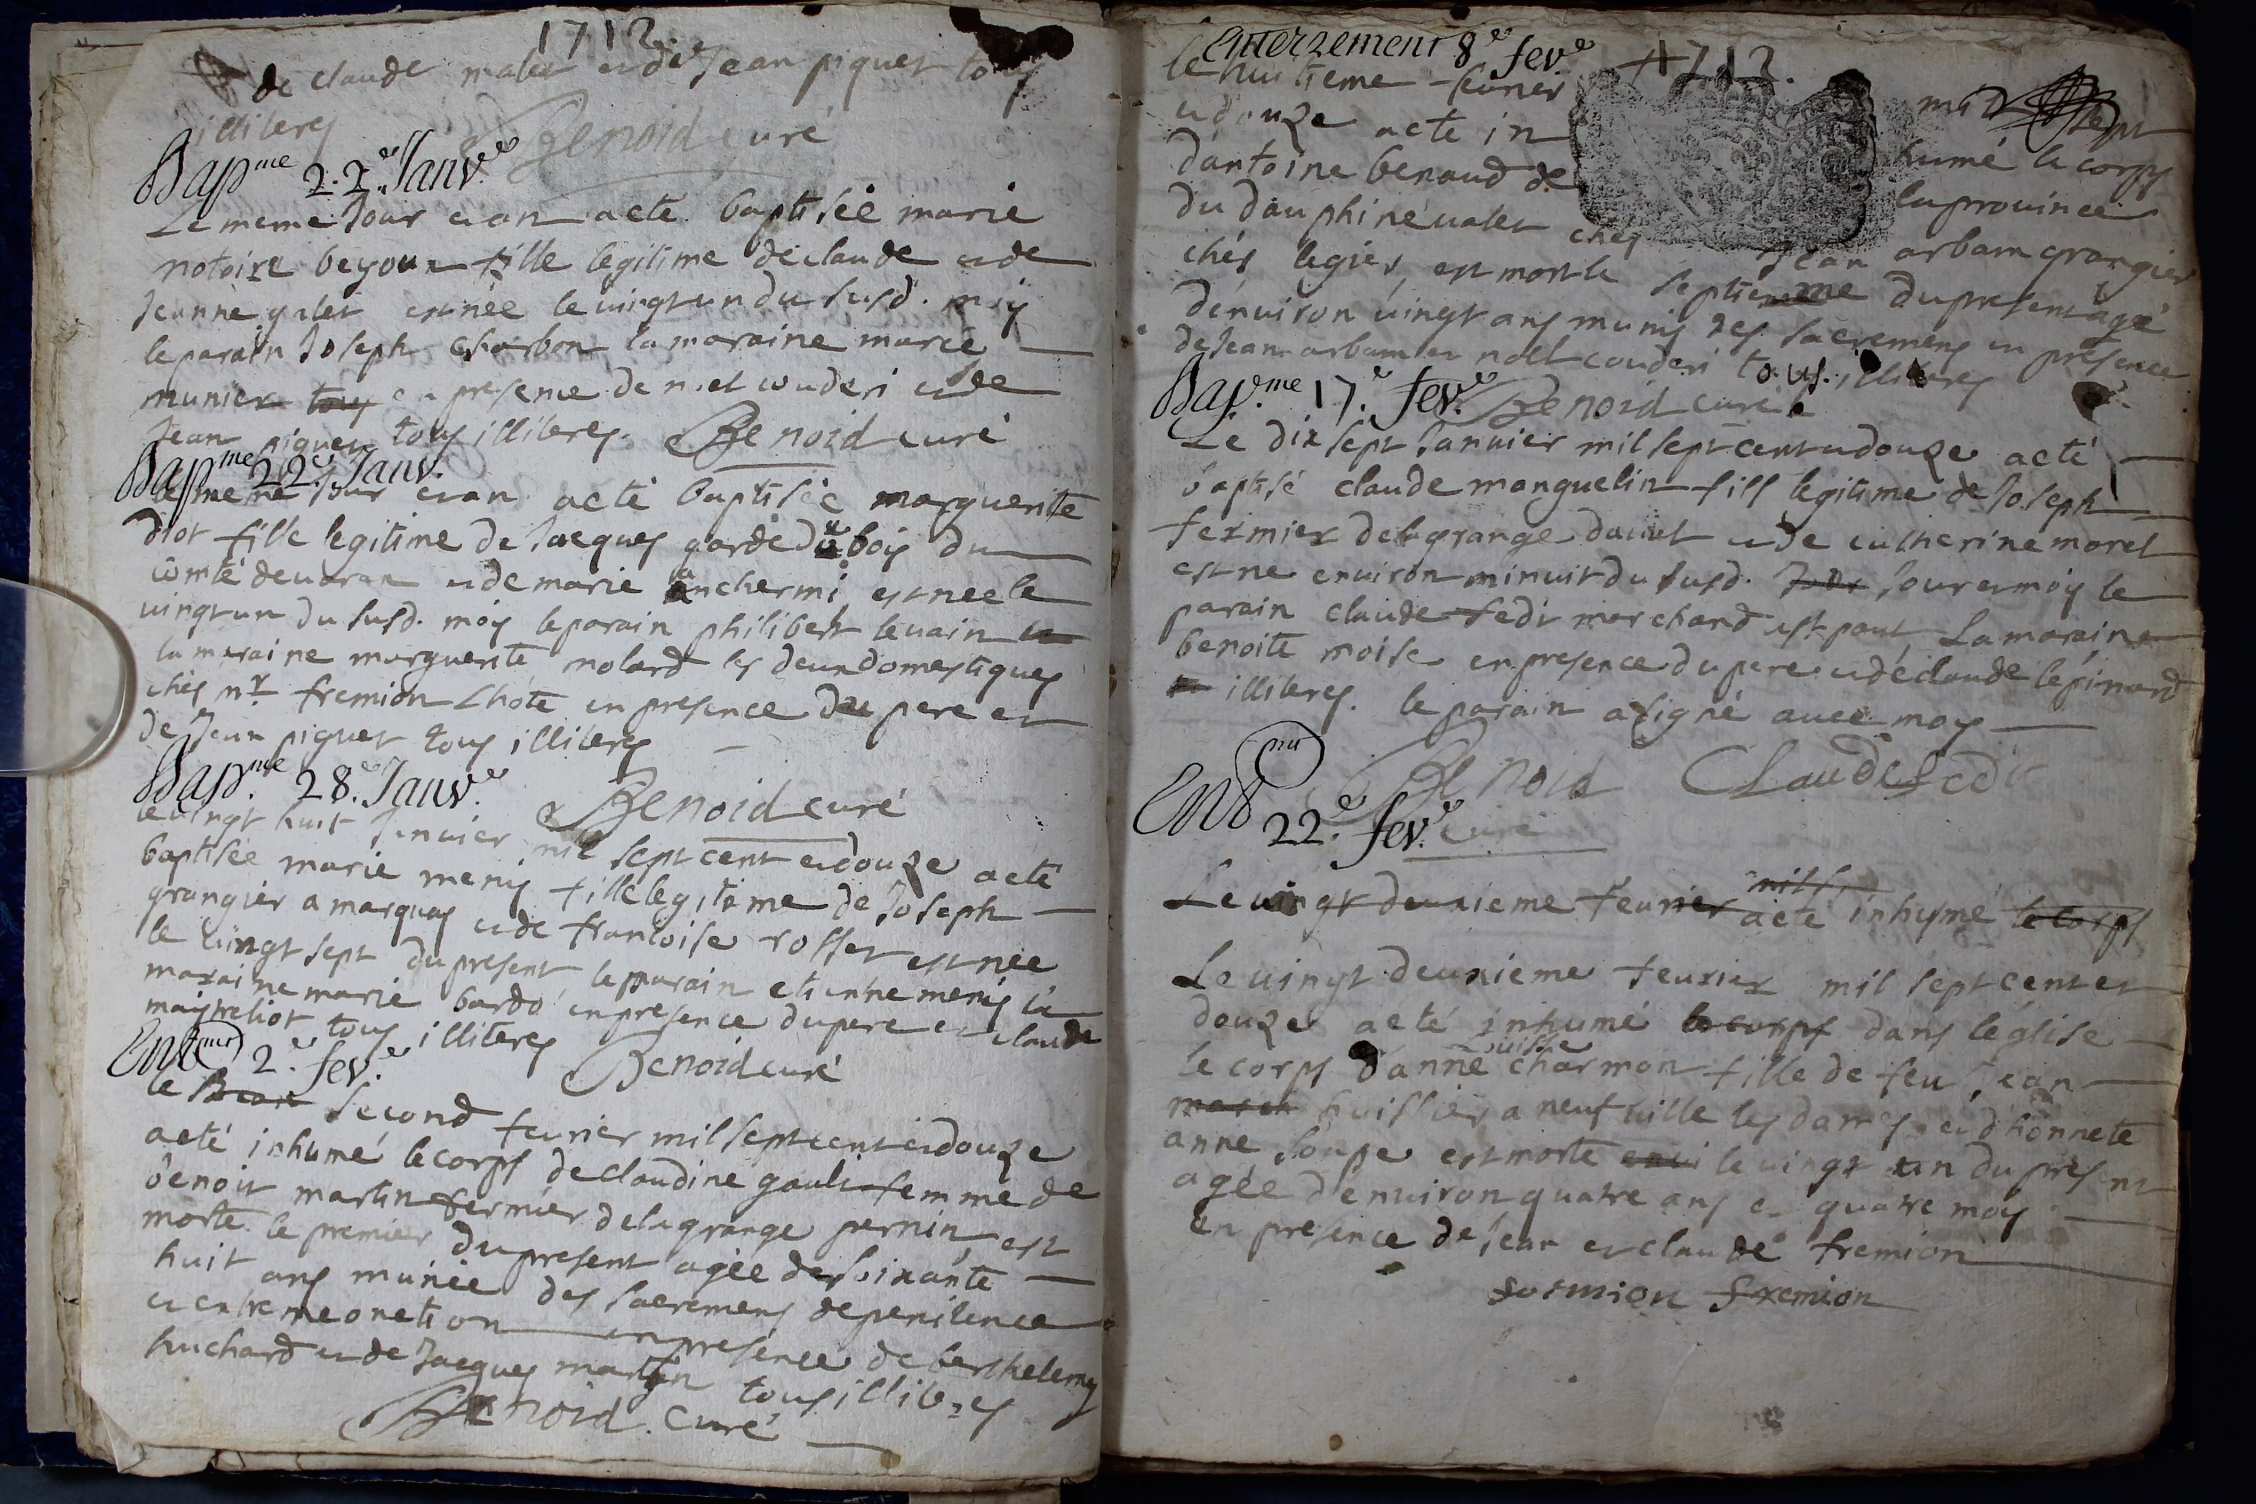 1712.
de claude malet et de Jean piquet tous
illiteres Benoid curé
Bapme 22e Janve
Le meme Jour et an acté baptisée marie
notoire beyoux fille legitime de claude et de
Jeanne galet est née le vingt un du susd. mois
le parain Joseph charbon la maraine marie
munier tous en presence de noel couderi et de
Jean piquet tous illiteres. Benoid curé
Bapme 22e Janv.
le meme Jour et an acté baptisée marguerite
diot fille legitime de Jacques garde de bois du
comté de varax et de marie anchermi est née le
vingt un du susd. mois le parain philibert levain
la maraine marguerite molard les deux domestiques
chés mr fremion Lhote en presence du pere et
de Jean piquet tous illiteres
Bapme 28e Janve
Benoid curé
le vingt huit Janvier mil sept cent et douze acté
baptisée marie menis fille legitime de Joseph
grangier a marquas et de francoise rosset est née
le vingt sept du present, le parain etienne menis la
maraine marie bardo en presence du pere et claude
maistreliot tous illiteres
Benoid curé
Entmt 2e fev.e
le second fevrier mil sept cent et douze
acté inhumé le corps de claudine gault femme de
benoit martin fermier de la grange pernin, est
morte le premier du present agée de soixante
huit ans munie des sacremens de penitence
et extreme onction en presence de barthelemy
huchard et de Jacques martin tous illiteres
Benoid curé
Enterzement 8e feve
1712.
le huitieme fevrier mil sept
et douze acté in humé le corps
d'antoine benaud de la province
du dauphiné valet chez Jean arbam grangier
chés legier, est mort le septieme du present agé
d'environ vingt ans munis des sacremens en presence
de Jean arbam et noel couderi tous illiteres
Bap.me 17e fev.e Benoid curé
Le dix sept Janvier mil sept cent et douze acté
baptisé claude manguelin fils legitime de Joseph
fermier de la grange davet et de catherine morel
est né environ minuit du susd. Jour Jour et mois le
parain claude fedi marchand a st paul, La maraine
benoite moise en presence du pere et de claude lépinard
illiteres. le parain a signé avec moy
Benoid Claude fedi
Entmt 22e fev.e curé
Le vingt deuxieme fevrier mil s acté inhumé le corps
Le vingt deuxieme fevrier mil sept cent et
douze acté inhumé le corps dans l'église
Louisse
le corps d'anne charmon fille de feu Jean
huissier a neufville les dames et d'honnete
anne Soupe est morte envi le vingt un du present
agée d'environ quatre ans et quatre mois
en presence de Jean et claude fremion
fremion